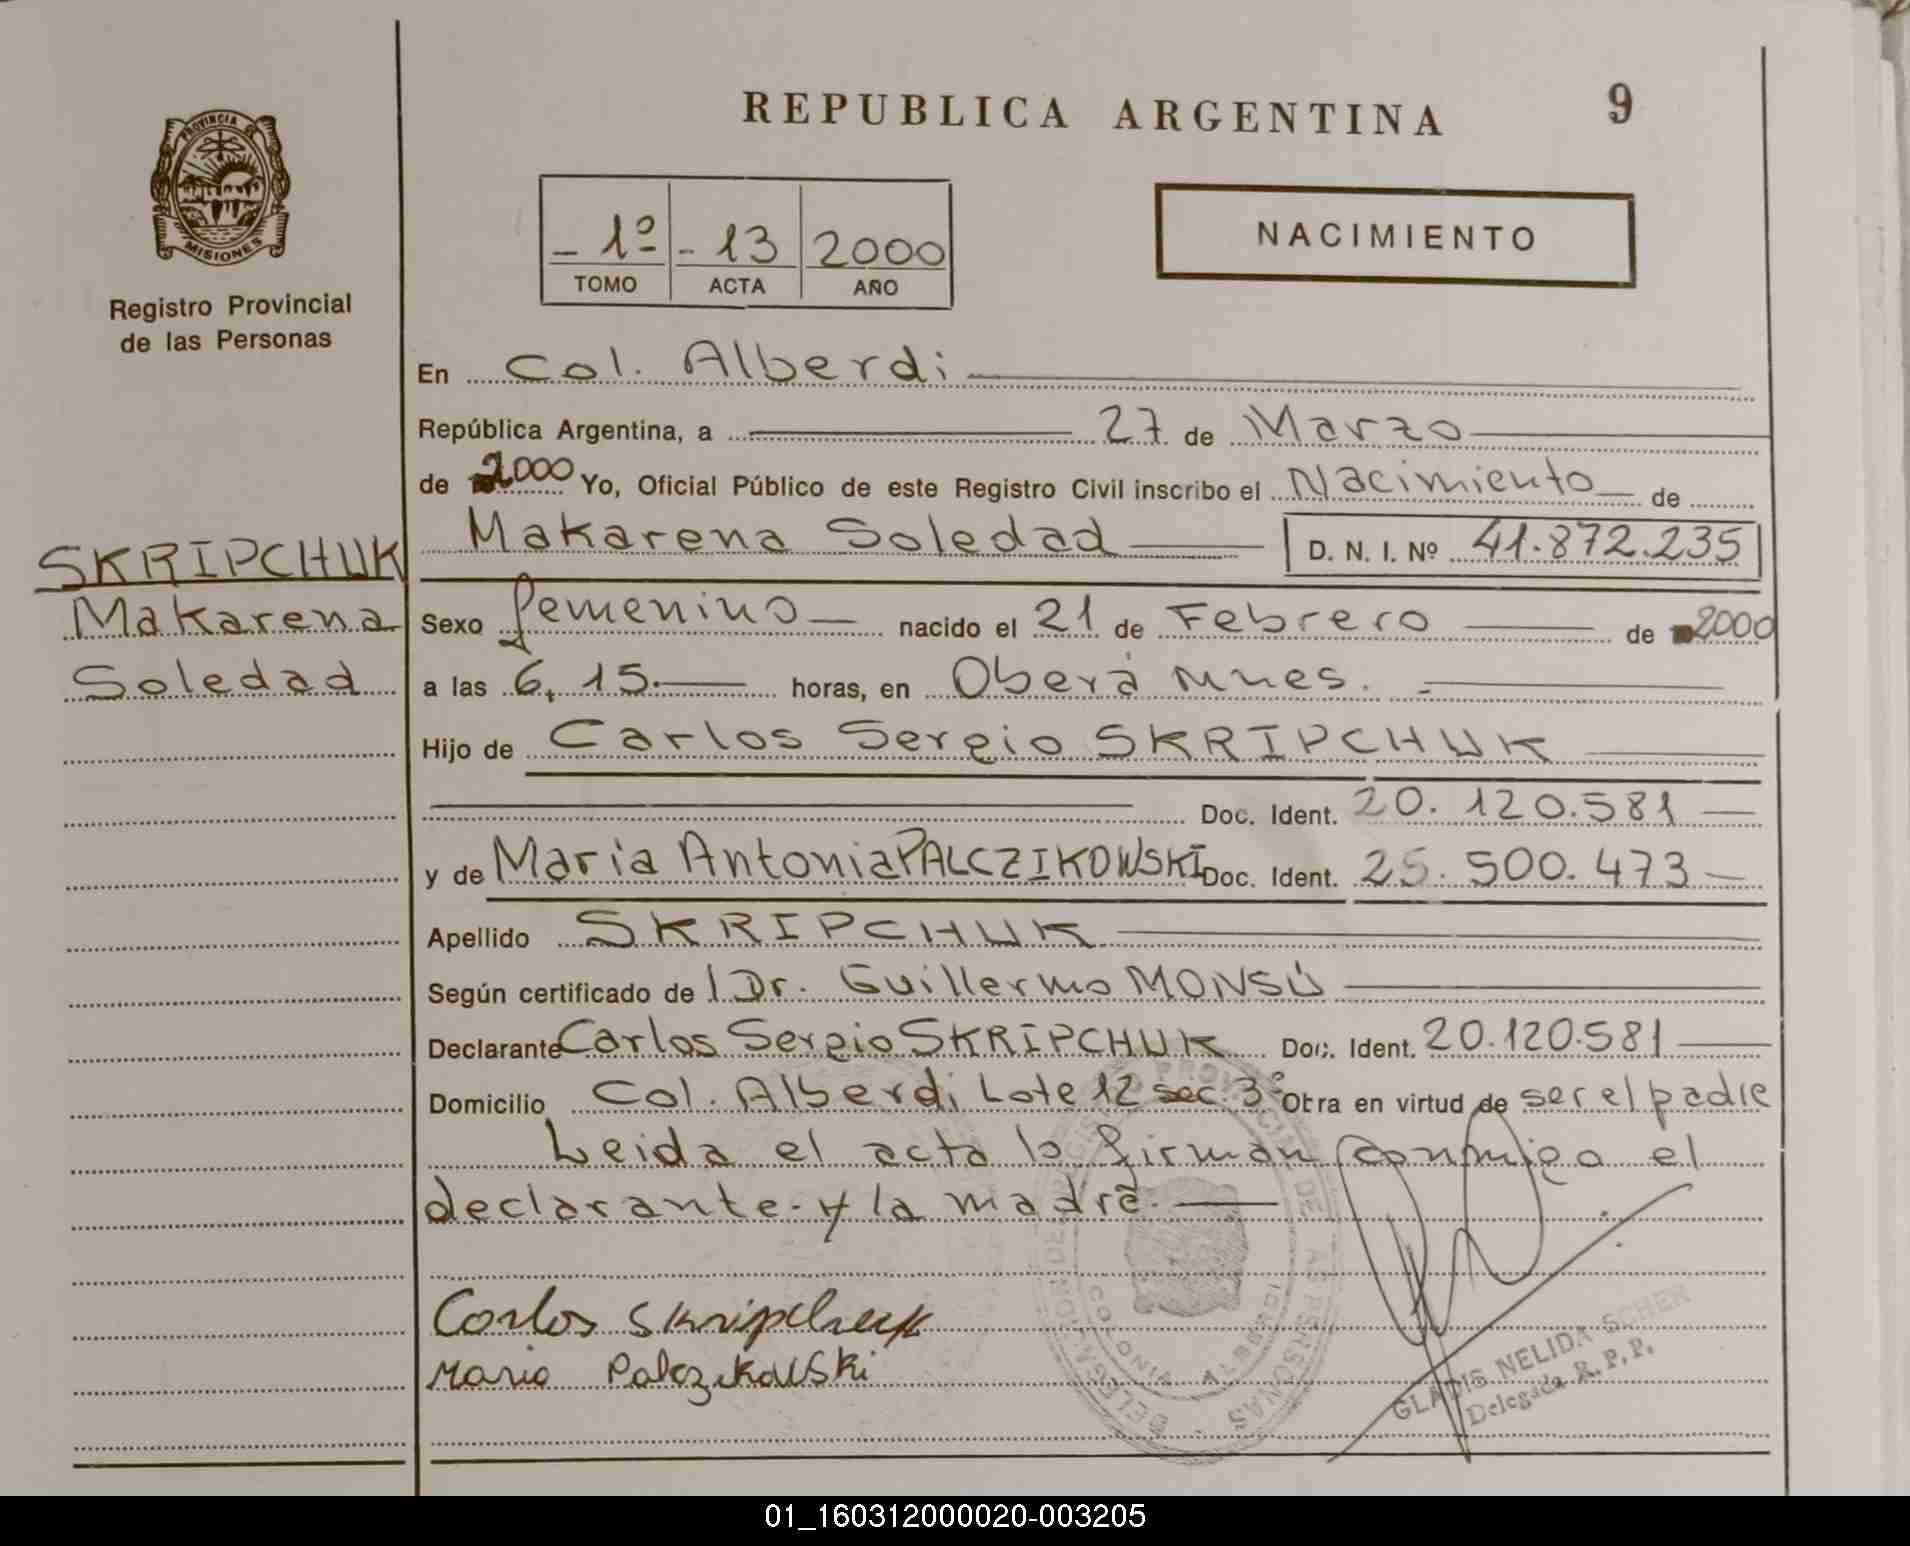 PROVINCIA DE
MISIONES
Registro Provincial
de las Personas
SKRIPCHUK
Makarena
Soledad
REPUBLICA ARGENTINA 9
- 1º - 13 2000
TOMO ACTA AÑO
NACIMIENTO
En Col. Alberdi
República Argentina, a 27 de Marzo
de 2000 Yo, Oficial Público de este Registro Civil inscribo el Nacimiento de
Makarena Soledad D. N. I. Nº 41.872.235
Sexo femenino nacido el 21 de Febrero de 2000
a las 6,15. horas, en Oberá Mnes.
Hijo de Carlos Sergio SKRIPCHUK
Doc. Ident. 20.120.581
y de Maria Antonia PALCZIKOWSKI Doc. Ident. 25.500.473
Apellido SKRIPCHUK
Según certificado de l Dr. Guillermo MONSÚ
Declarante Carlos Sergio SKRIPCHUK Doc. Ident. 20.120.581
Domicilio Col. Alberdi Lote 12 sec. 3º Obra en virtud de ser el padre
Leida el acta la firman conmigo el
declarante y la madre.
Carlos Skripchuk
Maria Palczikowski
COLONIA ALBERDI
GLADIS NELIDA SCHER
Delegada R. P. P.
01_160312000020-003205